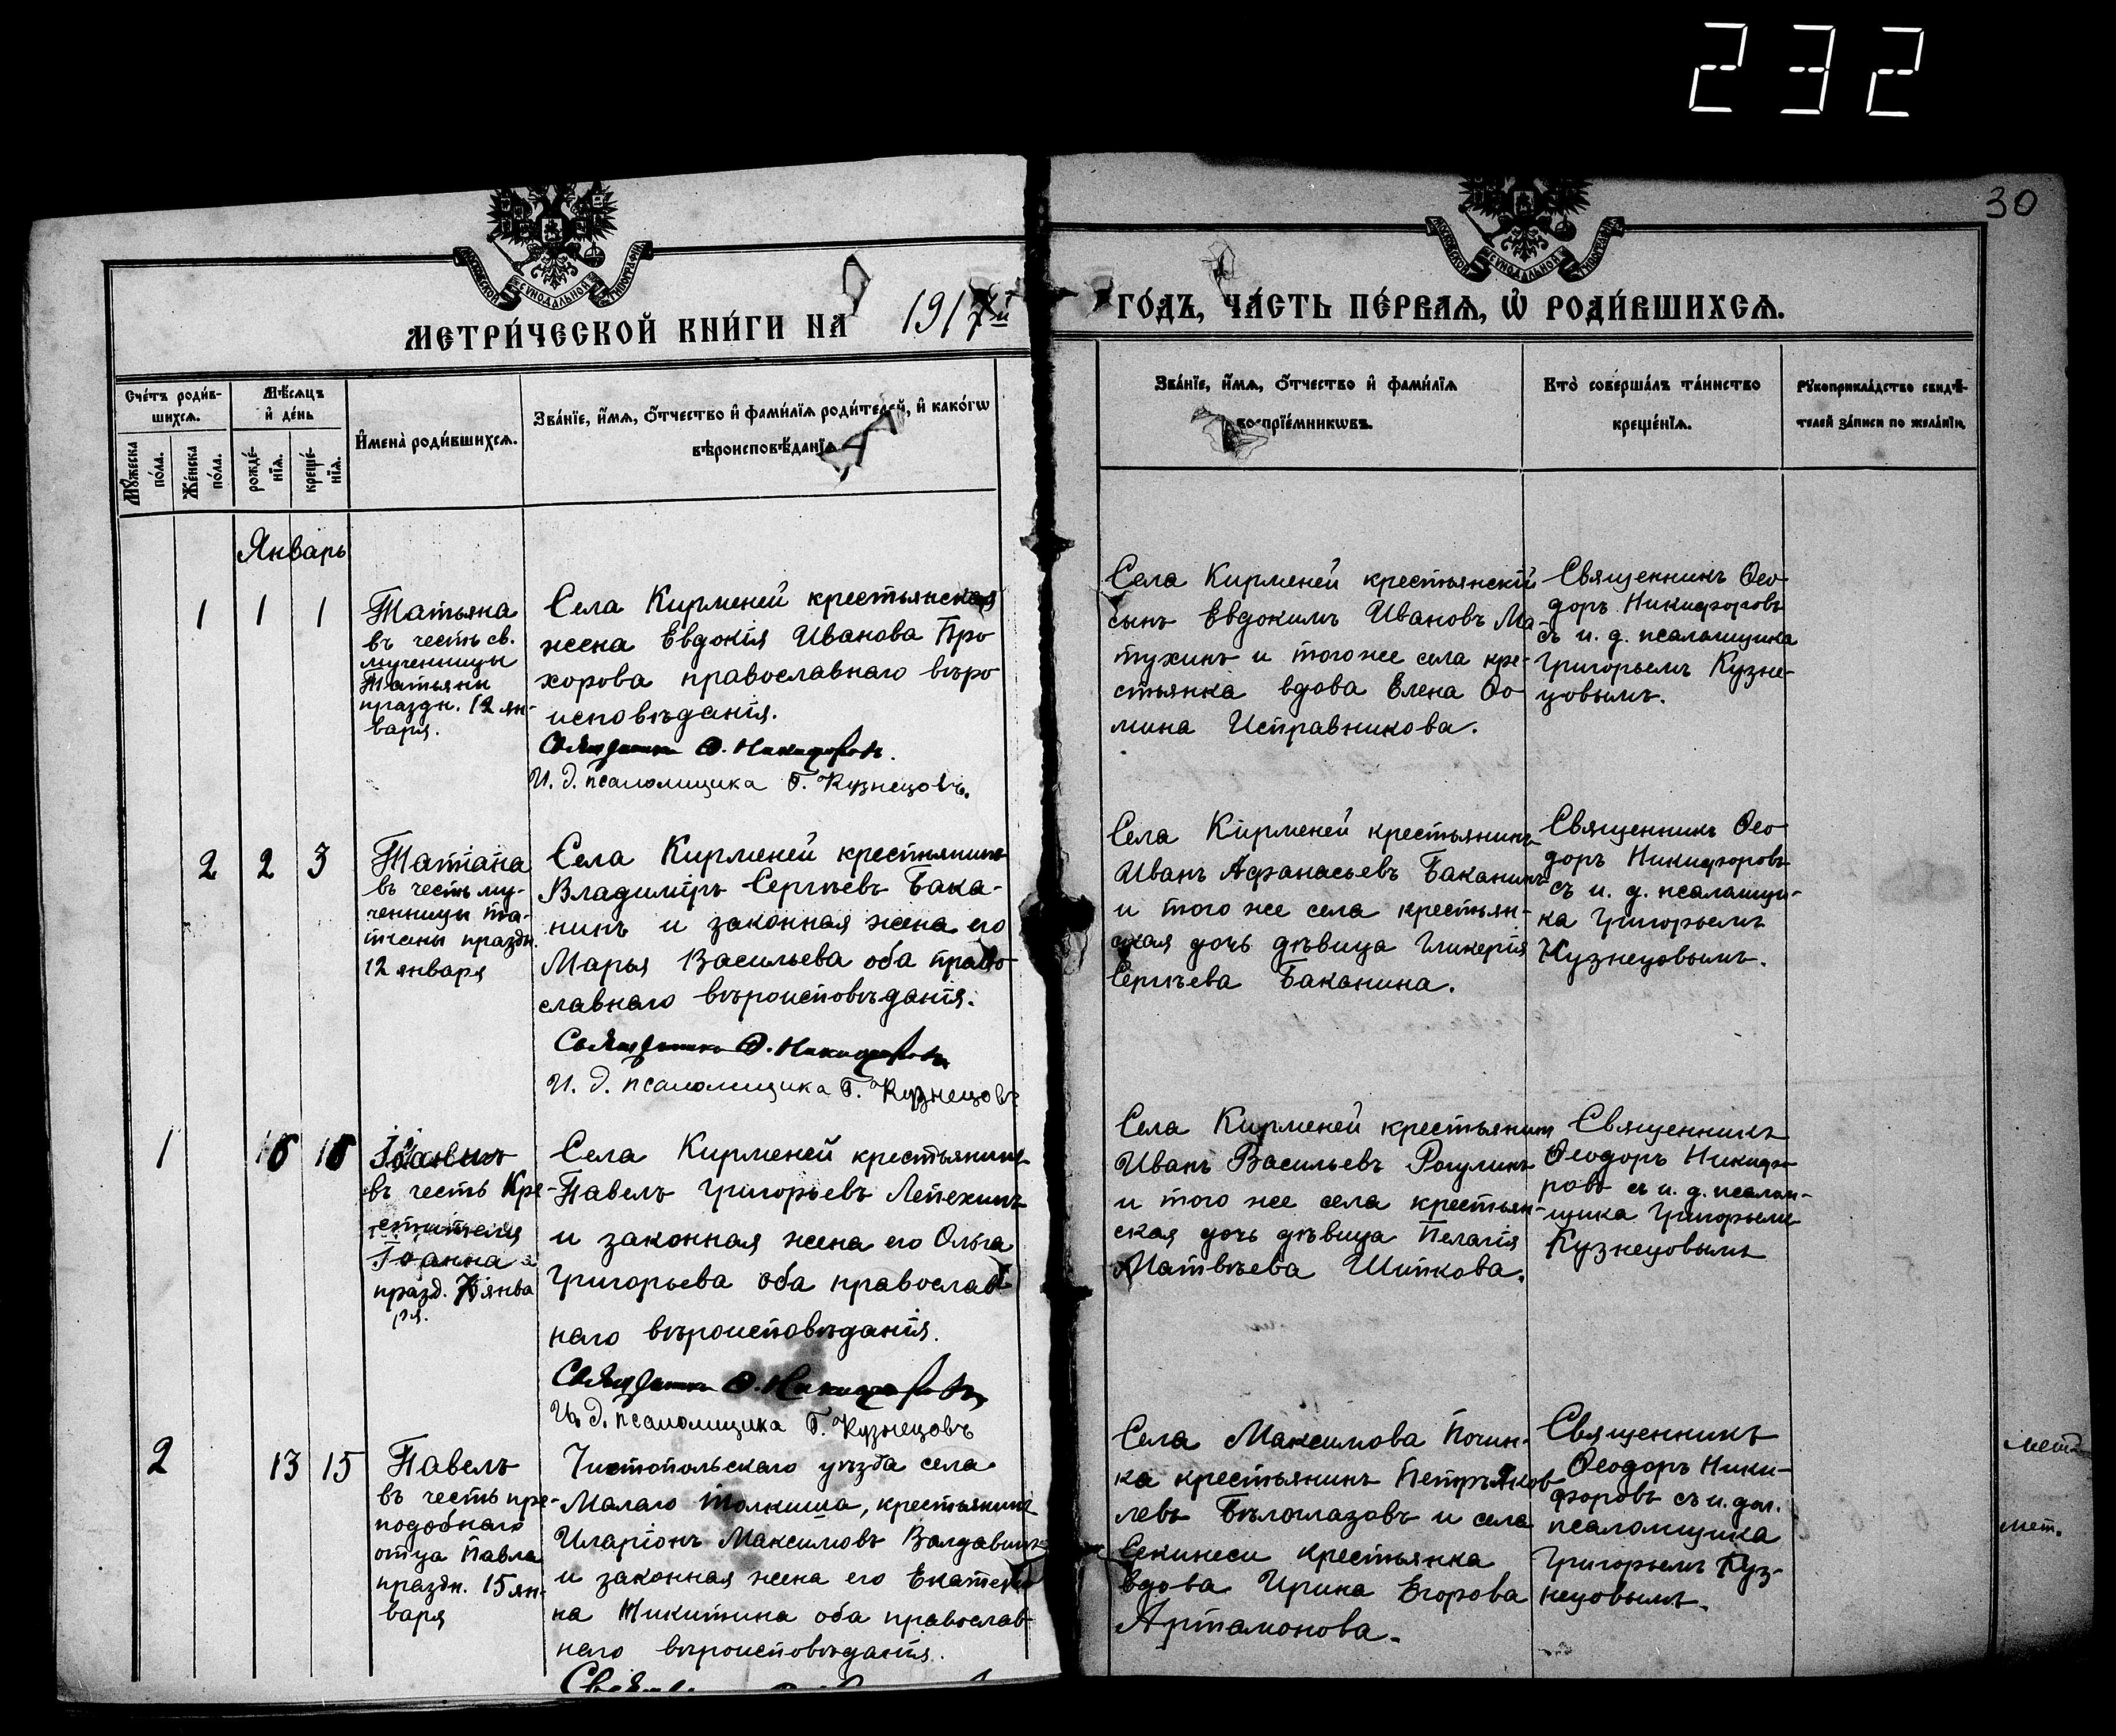 232
30
МОСКОВСКОЙ СѴНОДАЛЬНОЙ ТИПОГРАФІИ
МОСКОВСКОЙ СѴНОДАЛЬНОЙ ТИПОГРАФІИ
МЕТРИ́ЧЕСКОЙ КНИ́ГИ НА 1917й
ГО́ДЪ, ЧА́СТЬ ПЕ́РВАѦ, Ѡ҆ РОДИ́ВШИХСѦ.
Сче́тъ роди́в-
шихсѧ.
Мꙋжеска
по́ла.
Же́нска
по́ла.
Мѣ́сѧцъ
и҆ де́нь
рожде́-
нїѧ.
креще́-
нїѧ.
И҆мена̀ роди́вшихсѧ.
Зва́нїе, и҆́мѧ, ѻ҆́тчество и҆ фами́лїѧ роди́телей, и҆ како́гѡ
вѣроисповѣ́данїѧ
Зва́нїе, и҆́мѧ, ѻ҆́тчество и҆ фами́лїѧ
воспрїе́мникѡвъ.
Кто̀ соверша́лъ та́инство
креще́нїѧ.
Рꙋкоприкла́дство свидѣ́-
телей за́писи по жела́нїю.
Январь
1 1 1
Татьяна
въ честь св.
мученицы
Татьяны
праздн. 12 ян-
варя.
Села Кирменей крестьянская
жена Евдокія Иванова Про
хорова православнаго вѣро
исповѣданія.
Священникъ Ѳ. Никифоровъ.
И. д. псаломщика Г. Кузнецовъ.
Села Кирменей крестьянскій
сынъ Евдокимъ Ивановъ Ма-
тухинъ и того же села кре-
стьянка вдова Елена Ѳо
мина Исправникова.
Священникъ Ѳео
доръ Никифоровъ
съ и. д. псаломщика
Григорьемъ Кузне-
цовымъ.
2 2 3
Татіана
въ честь му-
ченицы Та-
тіаны праздн.
12 января
Села Кирменей крестьянинъ
Владиміръ Сергѣевъ Бака-
нинъ и законная жена его
Марья Васильева оба право
славнаго вѣроисповѣданія.
Священникъ Ѳ. Никифоровъ
И. д. псаломщика Г. Кузнецовъ
Села Кирменей крестьянинъ
Иванъ Афанасьевъ Баканинъ
и того же села крестьян-
ская дочь дѣвица Гликерія
Сергѣева Баканина.
Священникъ Ѳео
доръ Никифоровъ
съ и. д. псаломщи-
ка Григорьемъ
Кузнецовымъ.
1
въ честь Кре-
стителя
Іоанна
празд. 7 янва
ря.
Села Кирменей крестьянинъ
Павелъ Григорьевъ Лепехинъ
и законная жена его Ольга
Григорьева оба православ
наго вѣроисповѣданія.
Священникъ Ѳ. Никифоровъ
И. д. псаломщика Г. Кузнецовъ
Села Кирменей крестьянинъ
Иванъ Васильевъ Рогулинъ
и того же села крестьян-
ская дочь дѣвица Пелагія
Матвѣева Шипкова.
Священникъ
Ѳеодоръ Никифо
ровъ съ и. д. псалом-
щика Григорьемъ
Кузнецовымъ
2 13 15
Павелъ
въ честь пре-
подобнаго
отца Павла
праздн. 15 ян-
варя
Чистопольскаго уѣзда села
Малаго Толкиша, крестьянинъ
Иларіонъ Максимовъ Валдавинъ
и законная жена его Екатери
на Никитина оба православ
наго вѣроисповѣданія.
Села Максимова Почин-
ка крестьянинъ Петръ Яков
левъ Бѣлоглазовъ и села
Секинеси крестьянка
вдова Ирина Егорова
Артамонова.
Священникъ
Ѳеодоръ Ники-
форовъ съ и. дол.
псаломщика
Григорьемъ Куз-
нецовымъ.
мет.